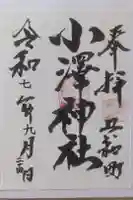 奉拝 五和町
小澤神社
令和七年九月三日